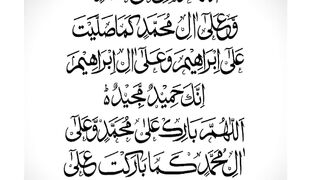 وَعَلىٰ اٰلِ مُحَمَّدٍ كَمَا صَلَّيْتَ
عَلىٰ اِبْرَاهِيْمَ وَعَلىٰ اٰلِ اِبْرَاهِيْمَ
اِنَّكَ حَمِيْدٌ مَّجِيْدٌ
اَللّٰهُمَّ بَارِكْ عَلىٰ مُحَمَّدٍ وَّعَلىٰ
اٰلِ مُحَمَّدٍ كَمَا بَارَكْتَ عَلىٰ